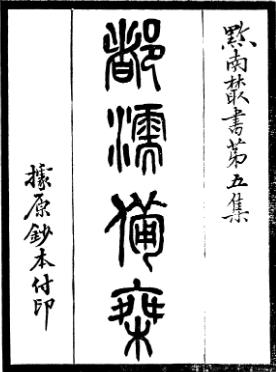 黔南叢書第五集
都濡備乘
據原鈔本付印